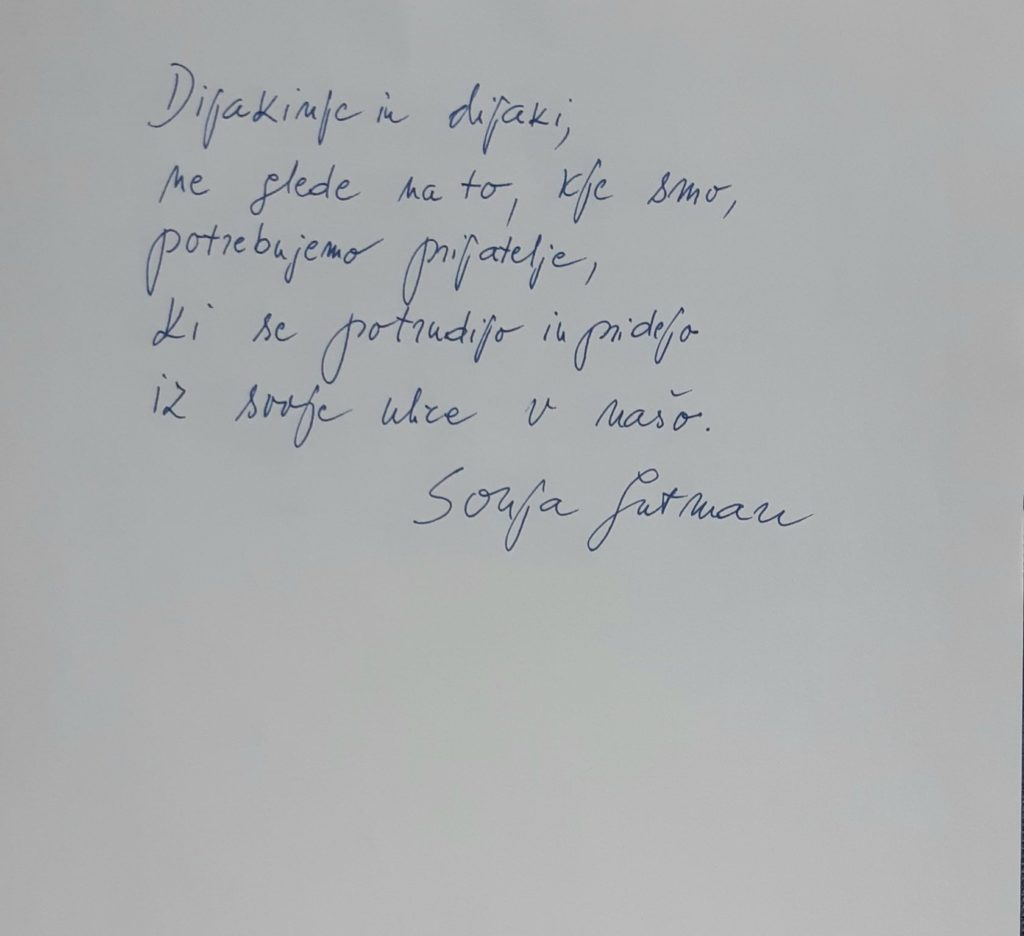 Dijakinje in dijaki,
ne glede na to, kje smo,
potrebujemo prijatelje,
ki se potrudijo in pridejo
iz svoje ulice v našo.
Sonja Gutman